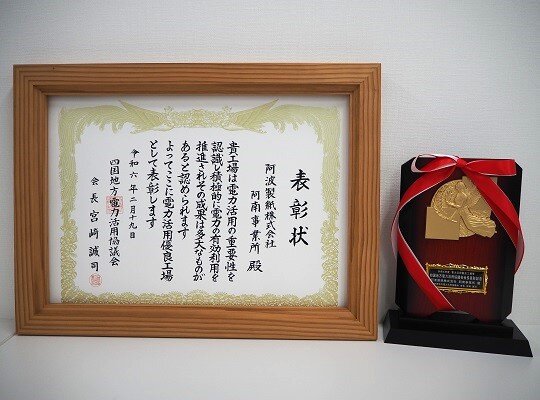 表彰状
阿波製紙株式会社
阿南事業所 殿
貴工場は電力活用の重要性を
認識し積極的に電力の有効利用を
推進されその成果は多大なものが
あると認められます
よってここに電力活用優良工場
として表彰します
令和六年二月十九日
四国地方電力活用協議会
会長 宮崎誠司